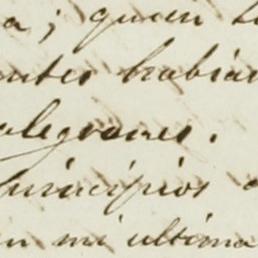 a; quien
antes habia
alegrones.
principios
en mi ultima